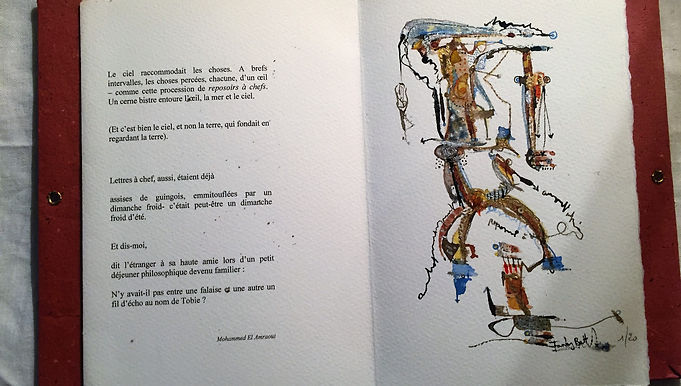 Le ciel raccommodait les choses. A brefs
intervalles, les choses percées, chacune, d'un œil
– comme cette procession de reposoirs à chefs.
Un cerne bistre entoure l'œil, la mer et le ciel.
(Et c'est bien le ciel, et non la terre, qui fondait en
regardant la terre).
Lettres à chef, aussi, étaient déjà
assises de guingois, emmitouflées par un
dimanche froid- c'était peut-être un dimanche
froid d'été.
Et dis-moi,
dit l'étranger à sa haute amie lors d'un petit
déjeuner philosophique devenu familier :
N'y avait-il pas entre une falaise et une autre un
fil d'écho au nom de Tobie ?
Mohammed El Amraoui
1/20